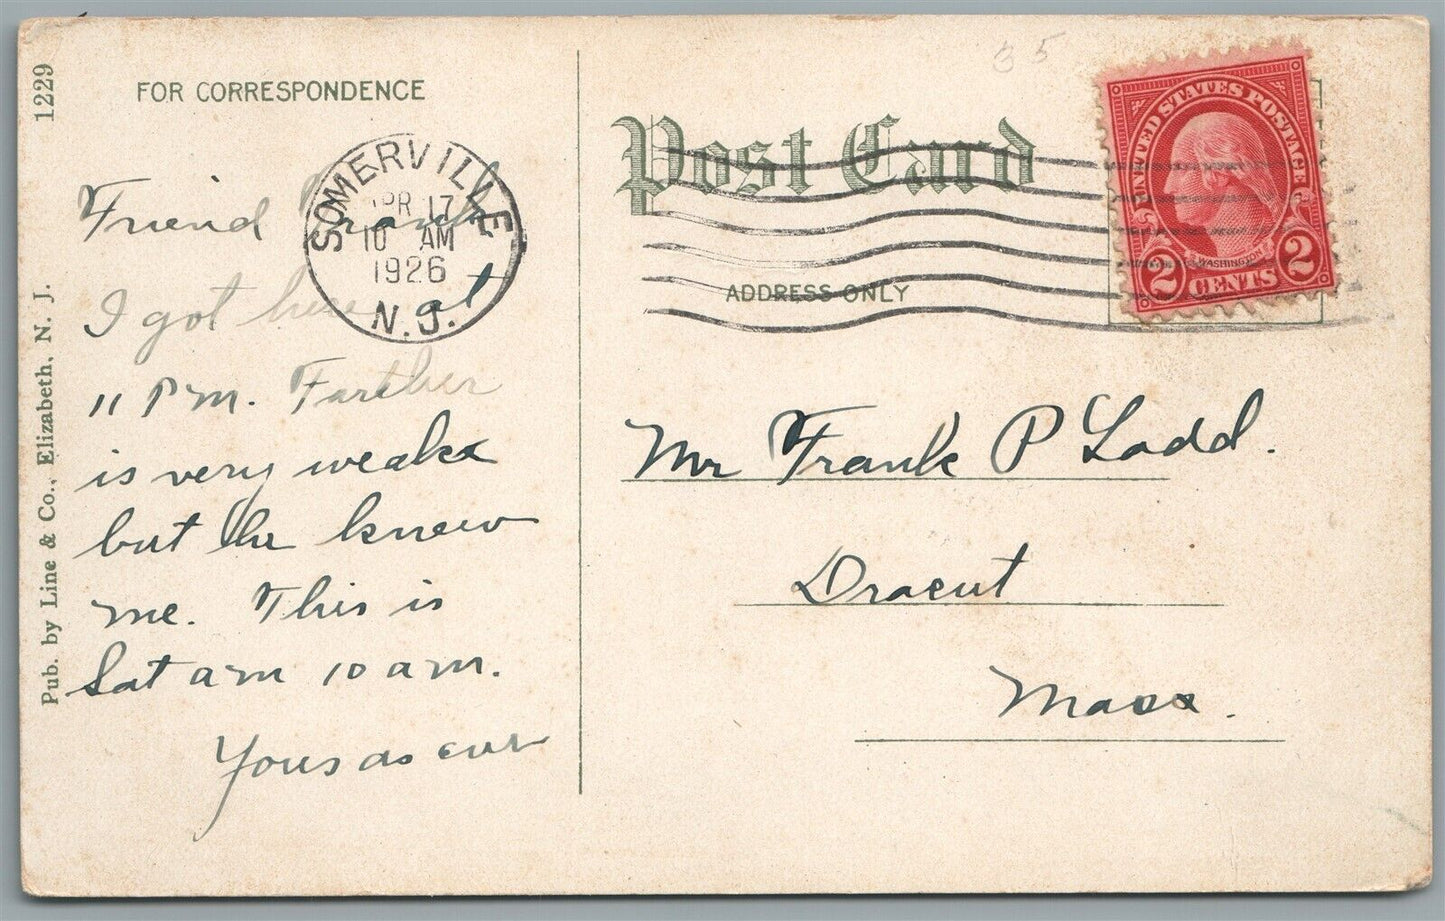 1229
Pub. by Line & Co., Elizabeth, N. J.
FOR CORRESPONDENCE
Friend Frank
I got here at
11 P m. Farther
is very weak
but he knew
me. This is
Sat a m 10 a m.
Yours as ever
SOMERVILLE
APR 17
10 AM
1926
N.J.
35
Post Card
ADDRESS ONLY
UNITED STATES POSTAGE
WASHINGTON
2 CENTS 2
Mr Frank P Ladd.
Dracut
Mass.